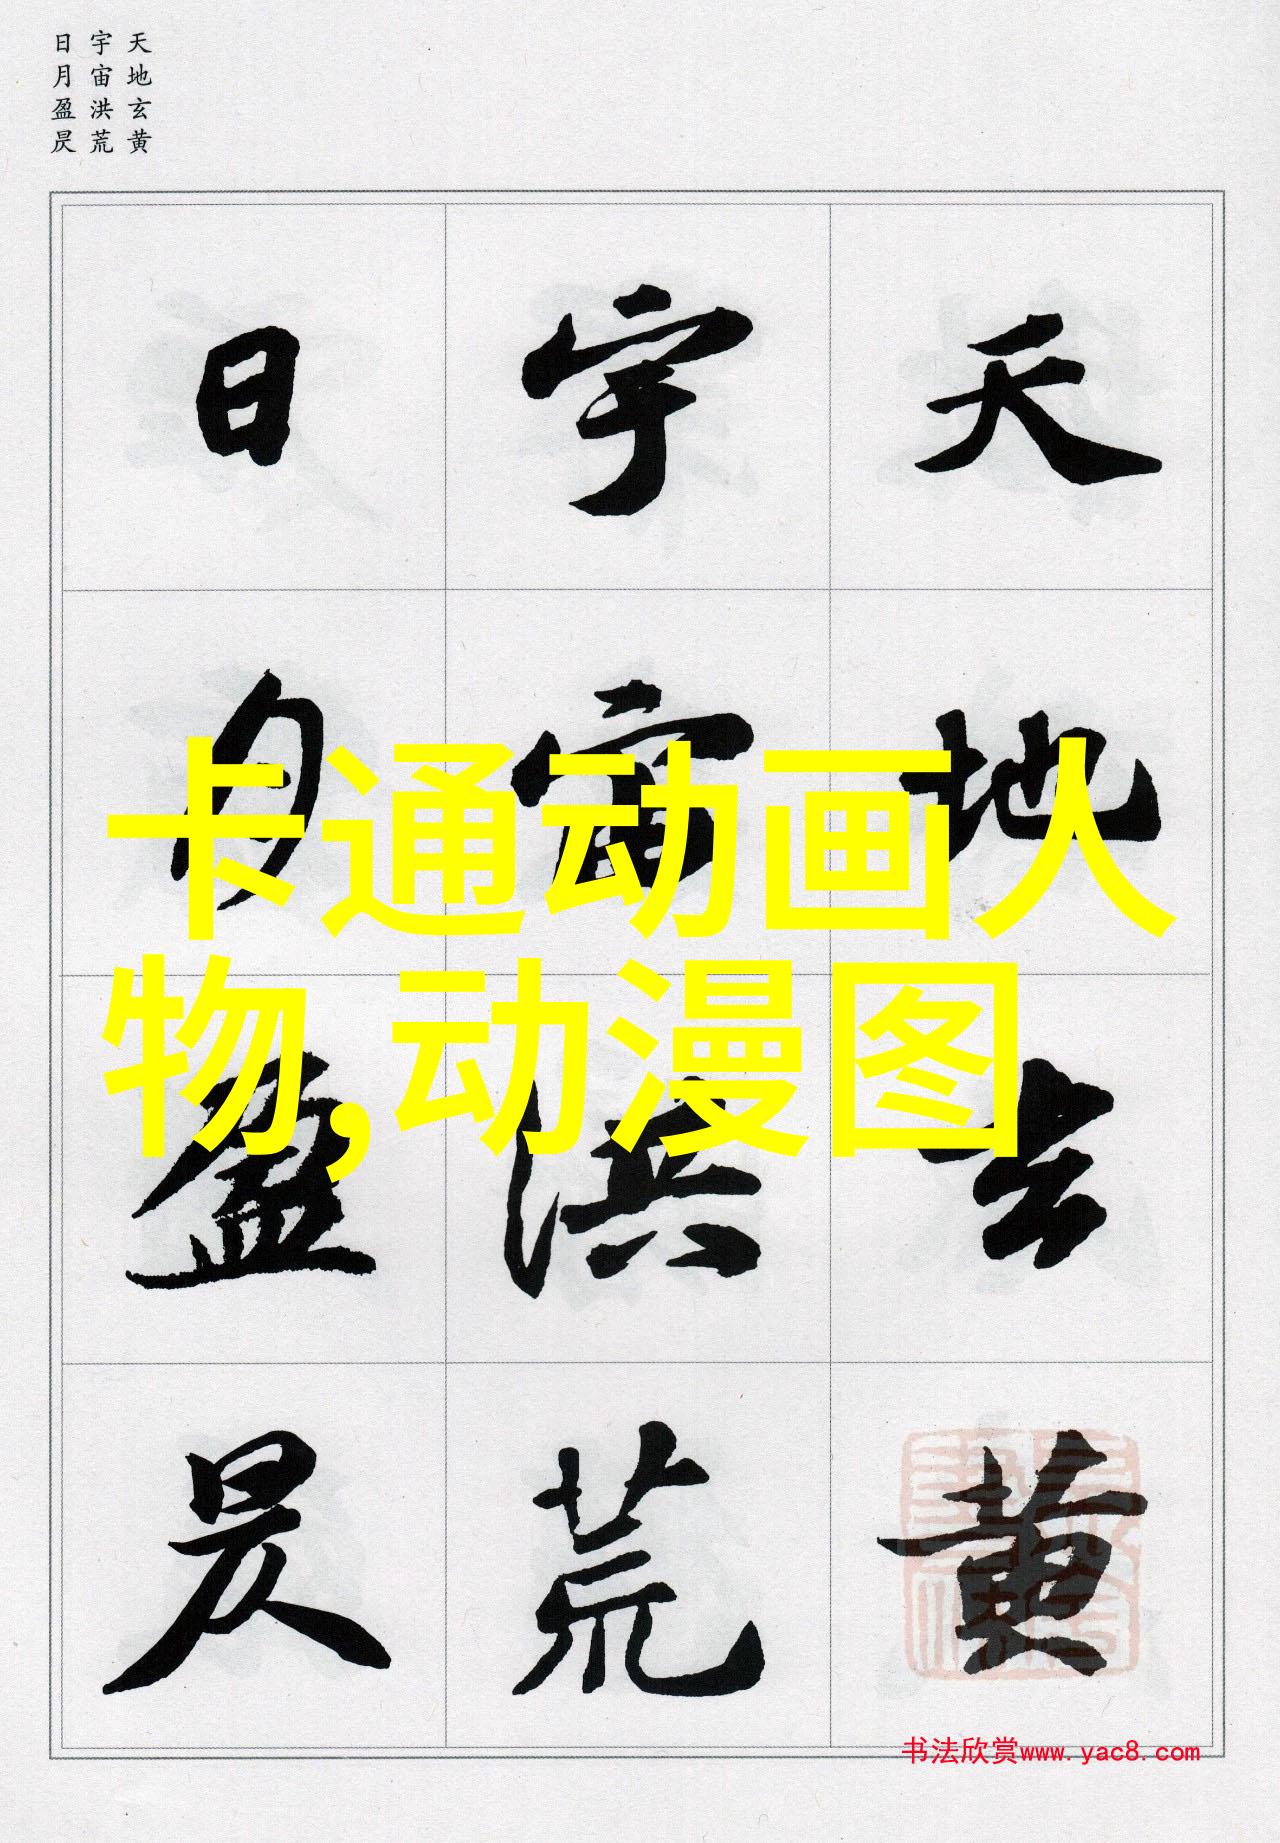 天地玄黄
宇宙洪荒
日月盈昃
天地玄黄
宇宙洪荒
日月盈昃
卡通动画人
物,动漫图
书法欣赏www.yac8.com